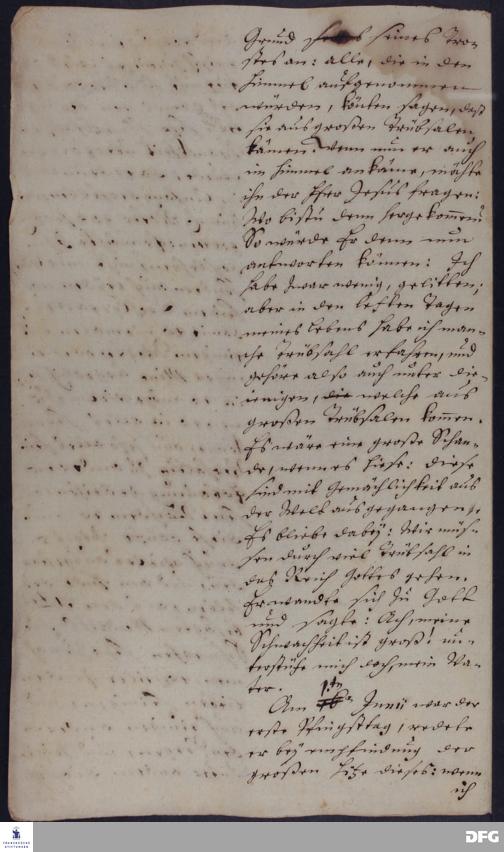 Grund seines Tro-
stes an: alle, die in den
Himmel aufgenommen
würden, könten sagen, daß
sie aus großen Trübsalen
kämen. Wenn nun er auch
im Himmel ankäme, möchte
ihn der Herr Jesus fragen:
Wo bistu denn hergekommen?
So würde Er denn nun
antworten können: Ich
habe zwar wenig gelitten;
aber in den letzten Tagen
meines Lebens habe ich man-
che Trübsahl erfahren, und
gehöre also auch unter die-
jenigen, welche aus
großen Trübsalen kommen.
Es wäre eine große Schan-
de, wenn es hieße: diese
sind mit Gemächlichkeit aus
der Welt ausgegangen.
Es bliebe dabey: Wir müs-
sen durch viel Trübsahl in
das Reich Gottes gehen.
Er wandte sich zu Gott
und sagte: Ach, meine
Schwachheit ist groß! un-
terstütze mich doch, mein Va-
ter.
Am 1.ten Junii war der
erste Pfingsttag, redete
er bey empfindung der
großen Hitze dieses: wenn
ich
FRANCKESCHE STIFTUNGEN
DFG